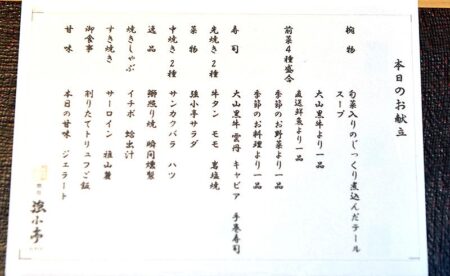 本日のお献立
椀物 旬菜入りのじっくり煮込んだテール
スープ
前菜4種盛合 大山黒牛より一品
直送鮮魚より一品
季節のお野菜より一品
季節のお料理より一品
寿司 大山黒牛 雲丹 キャビア 手巻寿司
先焼き2種 牛タン モモ 岩塩焼
菜物 強小亭サラダ
中焼き2種 サンカクバラ ハツ
逸品 瞬間燻製
焼きしゃぶ イチボ 蛤出汁
すき焼き サーロイン 山薯
御食事 削りたてトリュフご飯
甘味 本日の甘味 ジェラート
強小亭